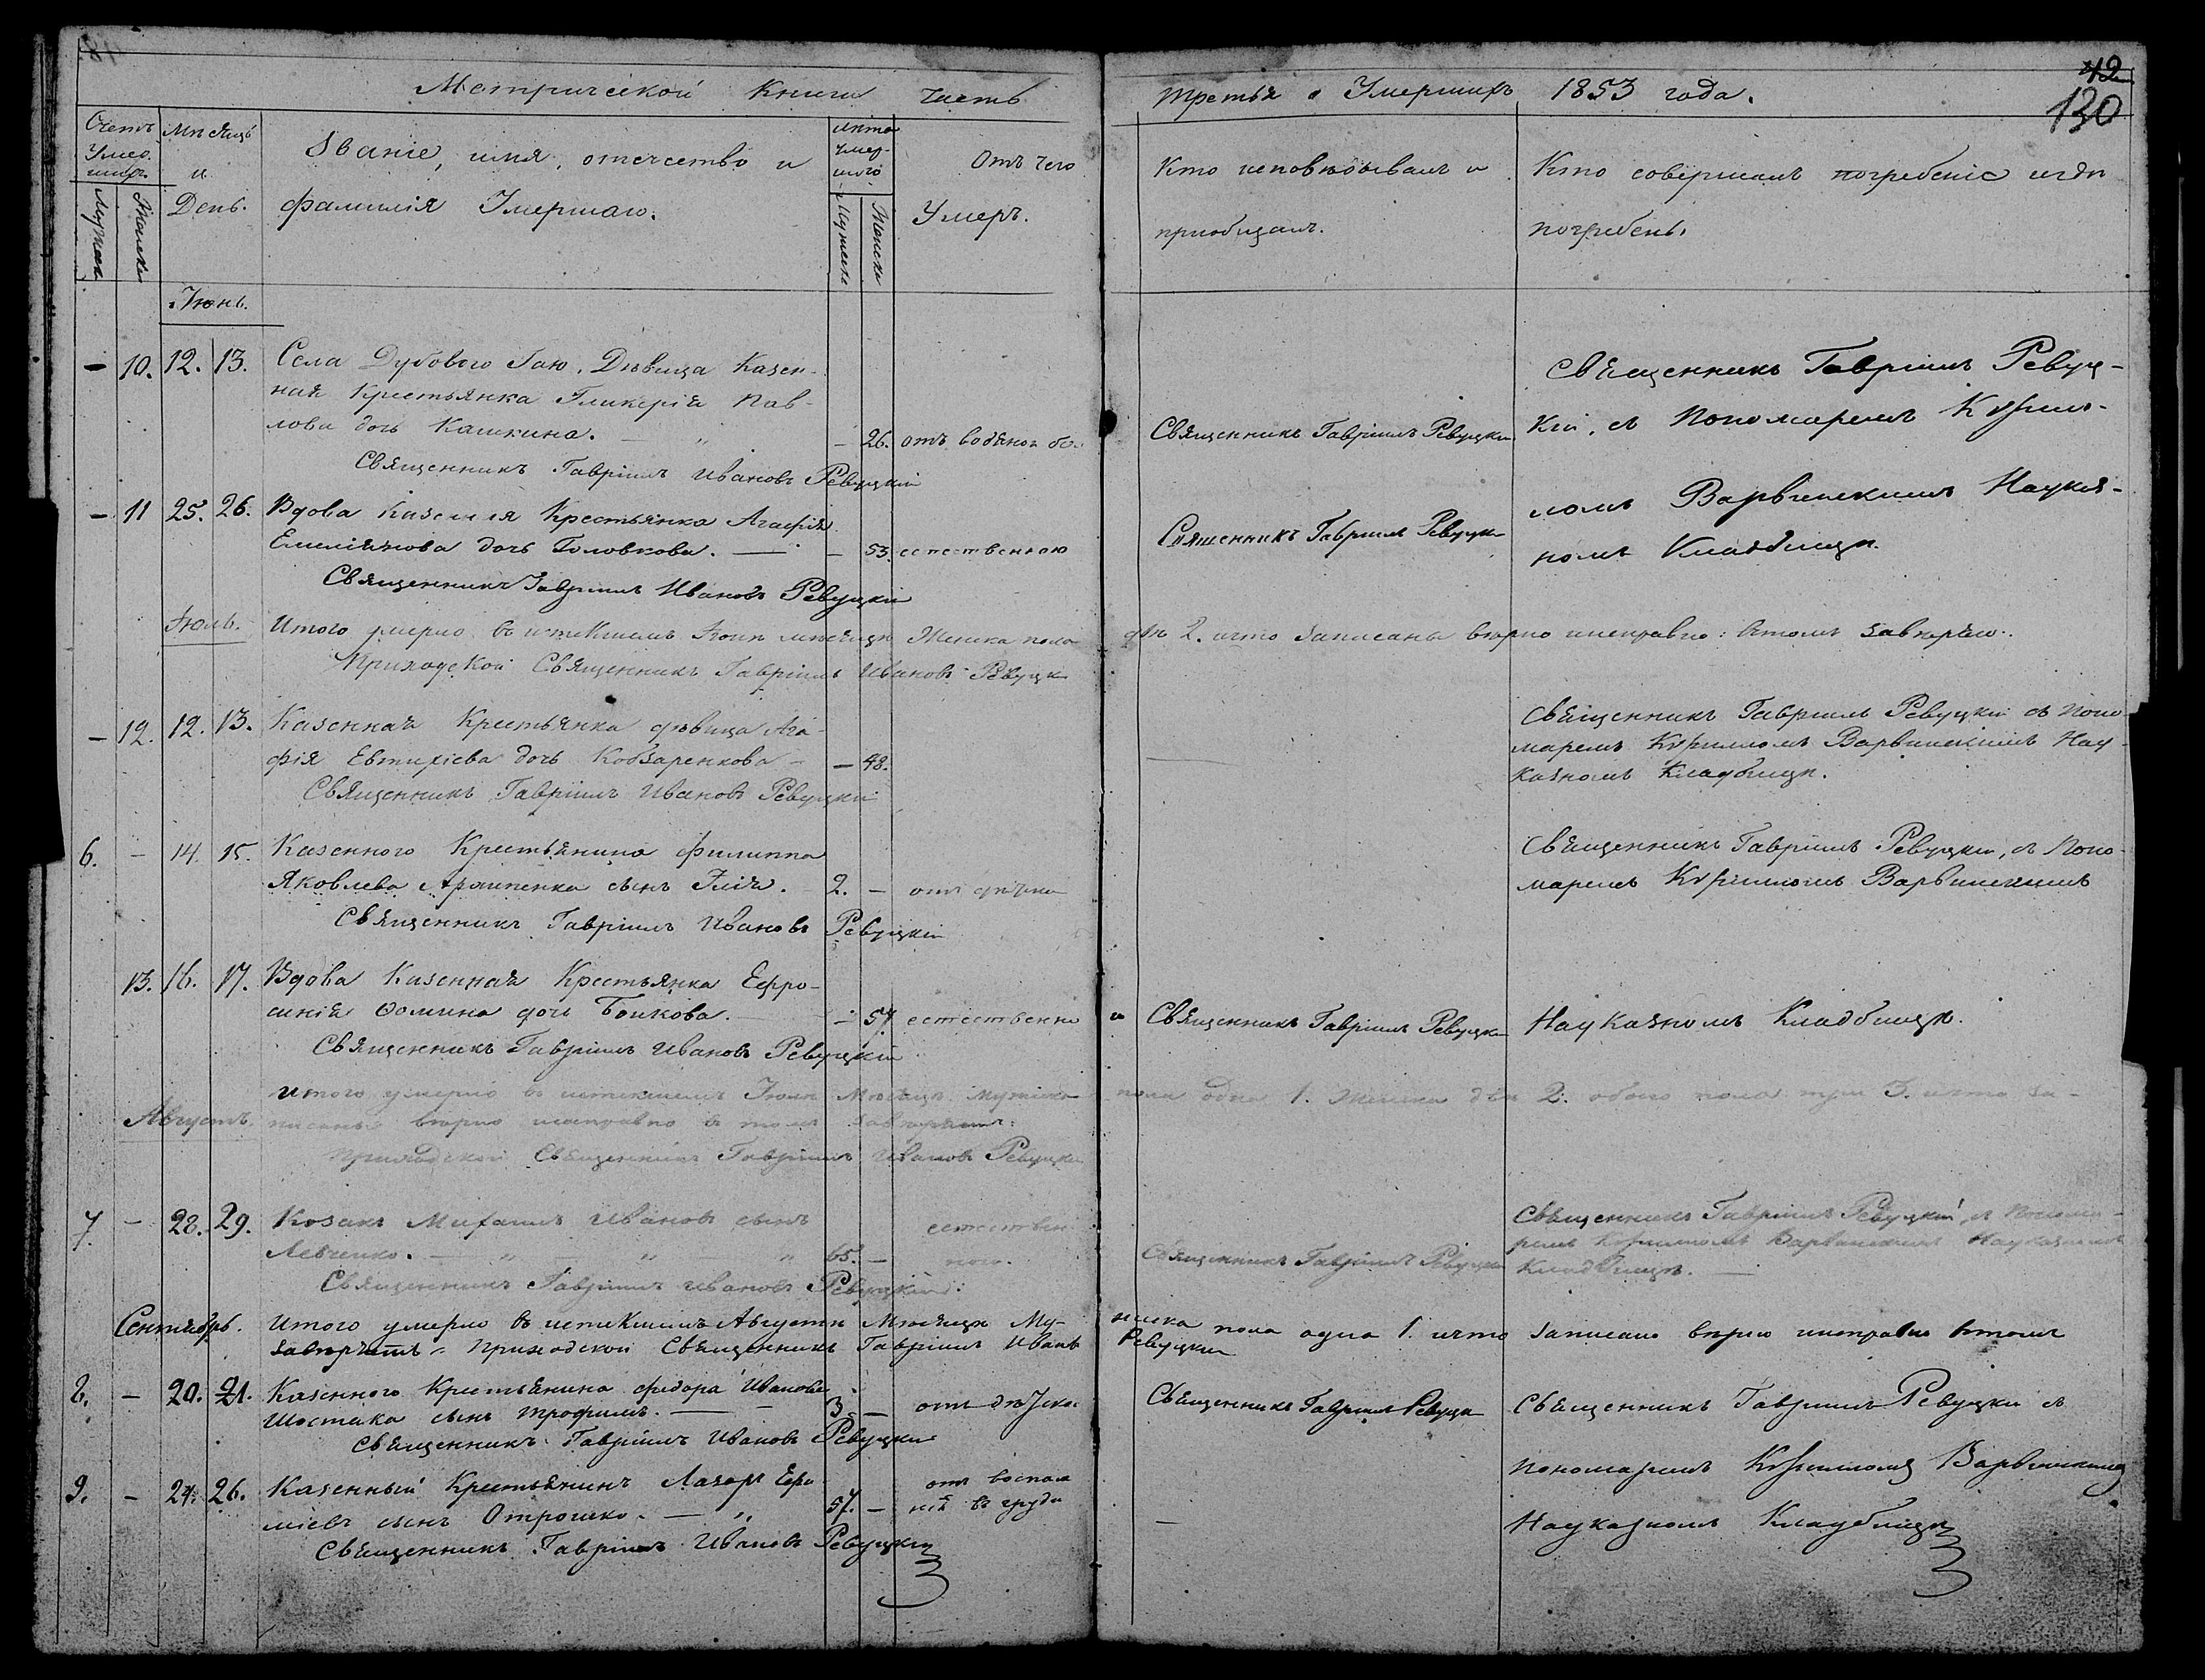 Метрической Книги часть
третья о Умершихъ 1853 года.
42
130
Счетъ Умерших.
Мужеска
Женска
Мѣсяцъ и День.
Званіе, имя, отчество и
фамилія Умершаго.
лѣта умершаго
Мужеска
Женска
Отъ чего
Умеръ.
Кто исповѣдывалъ и
пріобщалъ.
Кто совершалъ погребеніе и гдѣ
погребены.
Іюнь.
– 10. 12. 13. Села Дубового Гаю, Дѣвица Казен-
ная Крестьянка Гликерія Пав-
лова дочь Кашкина. – 26. отъ водяной бо.
Священникъ Гавріилъ Ивановъ Ревуцкій
Священникъ Гавріилъ Ревуцкій
Священникъ Гавріилъ Ревуц-
кій, съ Пономаремъ Кѵрил-
ломъ Варвинскимъ Науказ-
номъ Кладбищѣ.
– 11 25. 26. Вдова Казенная Крестьянка Агафія
Емиліянова дочь Головкова. – 53. естественною
Священникъ Гавріилъ Ивановъ Ревуцкій
Священникъ Гавріилъ Ревуцкій
Іюль. Итого умерло въ истекшемъ Іюнѣ мѣсяцѣ Женска пола двѣ 2. что записаны вѣрно исправно: втомъ завѣряю.
Приходской Священникъ Гавріилъ Ивановъ Ревуцкій
– 12. 12. 13. Казенная Крестьянка дѣвица Ага-
фія Евтихіева дочь Кобзаренкова – – 48.
Священникъ Гавріилъ Ивановъ Ревуцкій
Священникъ Гавріилъ Ревуцкій съ Поно-
маремъ Кѵрилломъ Варвинскимъ Нау-
казномъ Кладбищѣ.
6. – 14. 15. Казенного Крестьянина Филиппа
Яковлева сынъ Илія. 2. –
Священникъ Гавріилъ Ивановъ Ревуцкій
Священникъ Гавріилъ Ревуцкій, съ Поно-
маремъ Кѵрилломъ Варвинскимъ
13. 16. 17. Вдова Казенная Крестьянка Ефро-
синія Ѳомина дочь Бойкова. – 57 естественно
Священникъ Гавріилъ Ивановъ Ревуцкій
Священникъ Гавріилъ Ревуцкій
Науказномъ Кладбищѣ.
Итого умерло въ истекшемъ Іюлѣ Мѣсяцѣ Мужеска пола одна 1. Женска двѣ 2. обоего пола три 3. что за-
Августъ. писаны вѣрно исправно въ томъ завѣряю:
Приходской Священникъ Гавріилъ Ивановъ Ревуцкій
7. – 28. 29. Козакъ Михаилъ Ивановъ сынъ
Левченко. 65. – естествен
ною.
Священникъ Гавріилъ Ивановъ Ревуцкій.
Священникъ Гавріилъ Ревуцкій
Священникъ Гавріилъ Ревуцкій, съ Понома-
ремъ Кѵрилломъ Варвинскимъ Науказномъ
Кладбищѣ.
Сентябрь. Итого умерло въ истекшемъ Августѣ Мѣсяцѣ Му-
жеска пола одна 1. что записано вѣрно исправно втомъ
завѣряемъ. Приходской Священникъ Гавріилъ Ивановъ Ревуцкій
8. – 20. 21. Казенного Крестьянина Федора Иванова
Шостака сынъ Трофимъ. 3. –
Священникъ Гавріилъ Ивановъ Ревуцкій
Священникъ Гавріилъ Ревуцкій
Священникъ Гавріилъ Ревуцкій съ
Пономаремъ Кѵрилломъ Варвинскимъ
Науказномъ Кладбищѣ
9. – 24. 26. Казенный Крестьянинъ Лазарь Ефи-
міевъ сынъ Отрошко. 57. – отъ воспале
нія въ груди
Священникъ Гавріилъ Ивановъ Ревуцкій